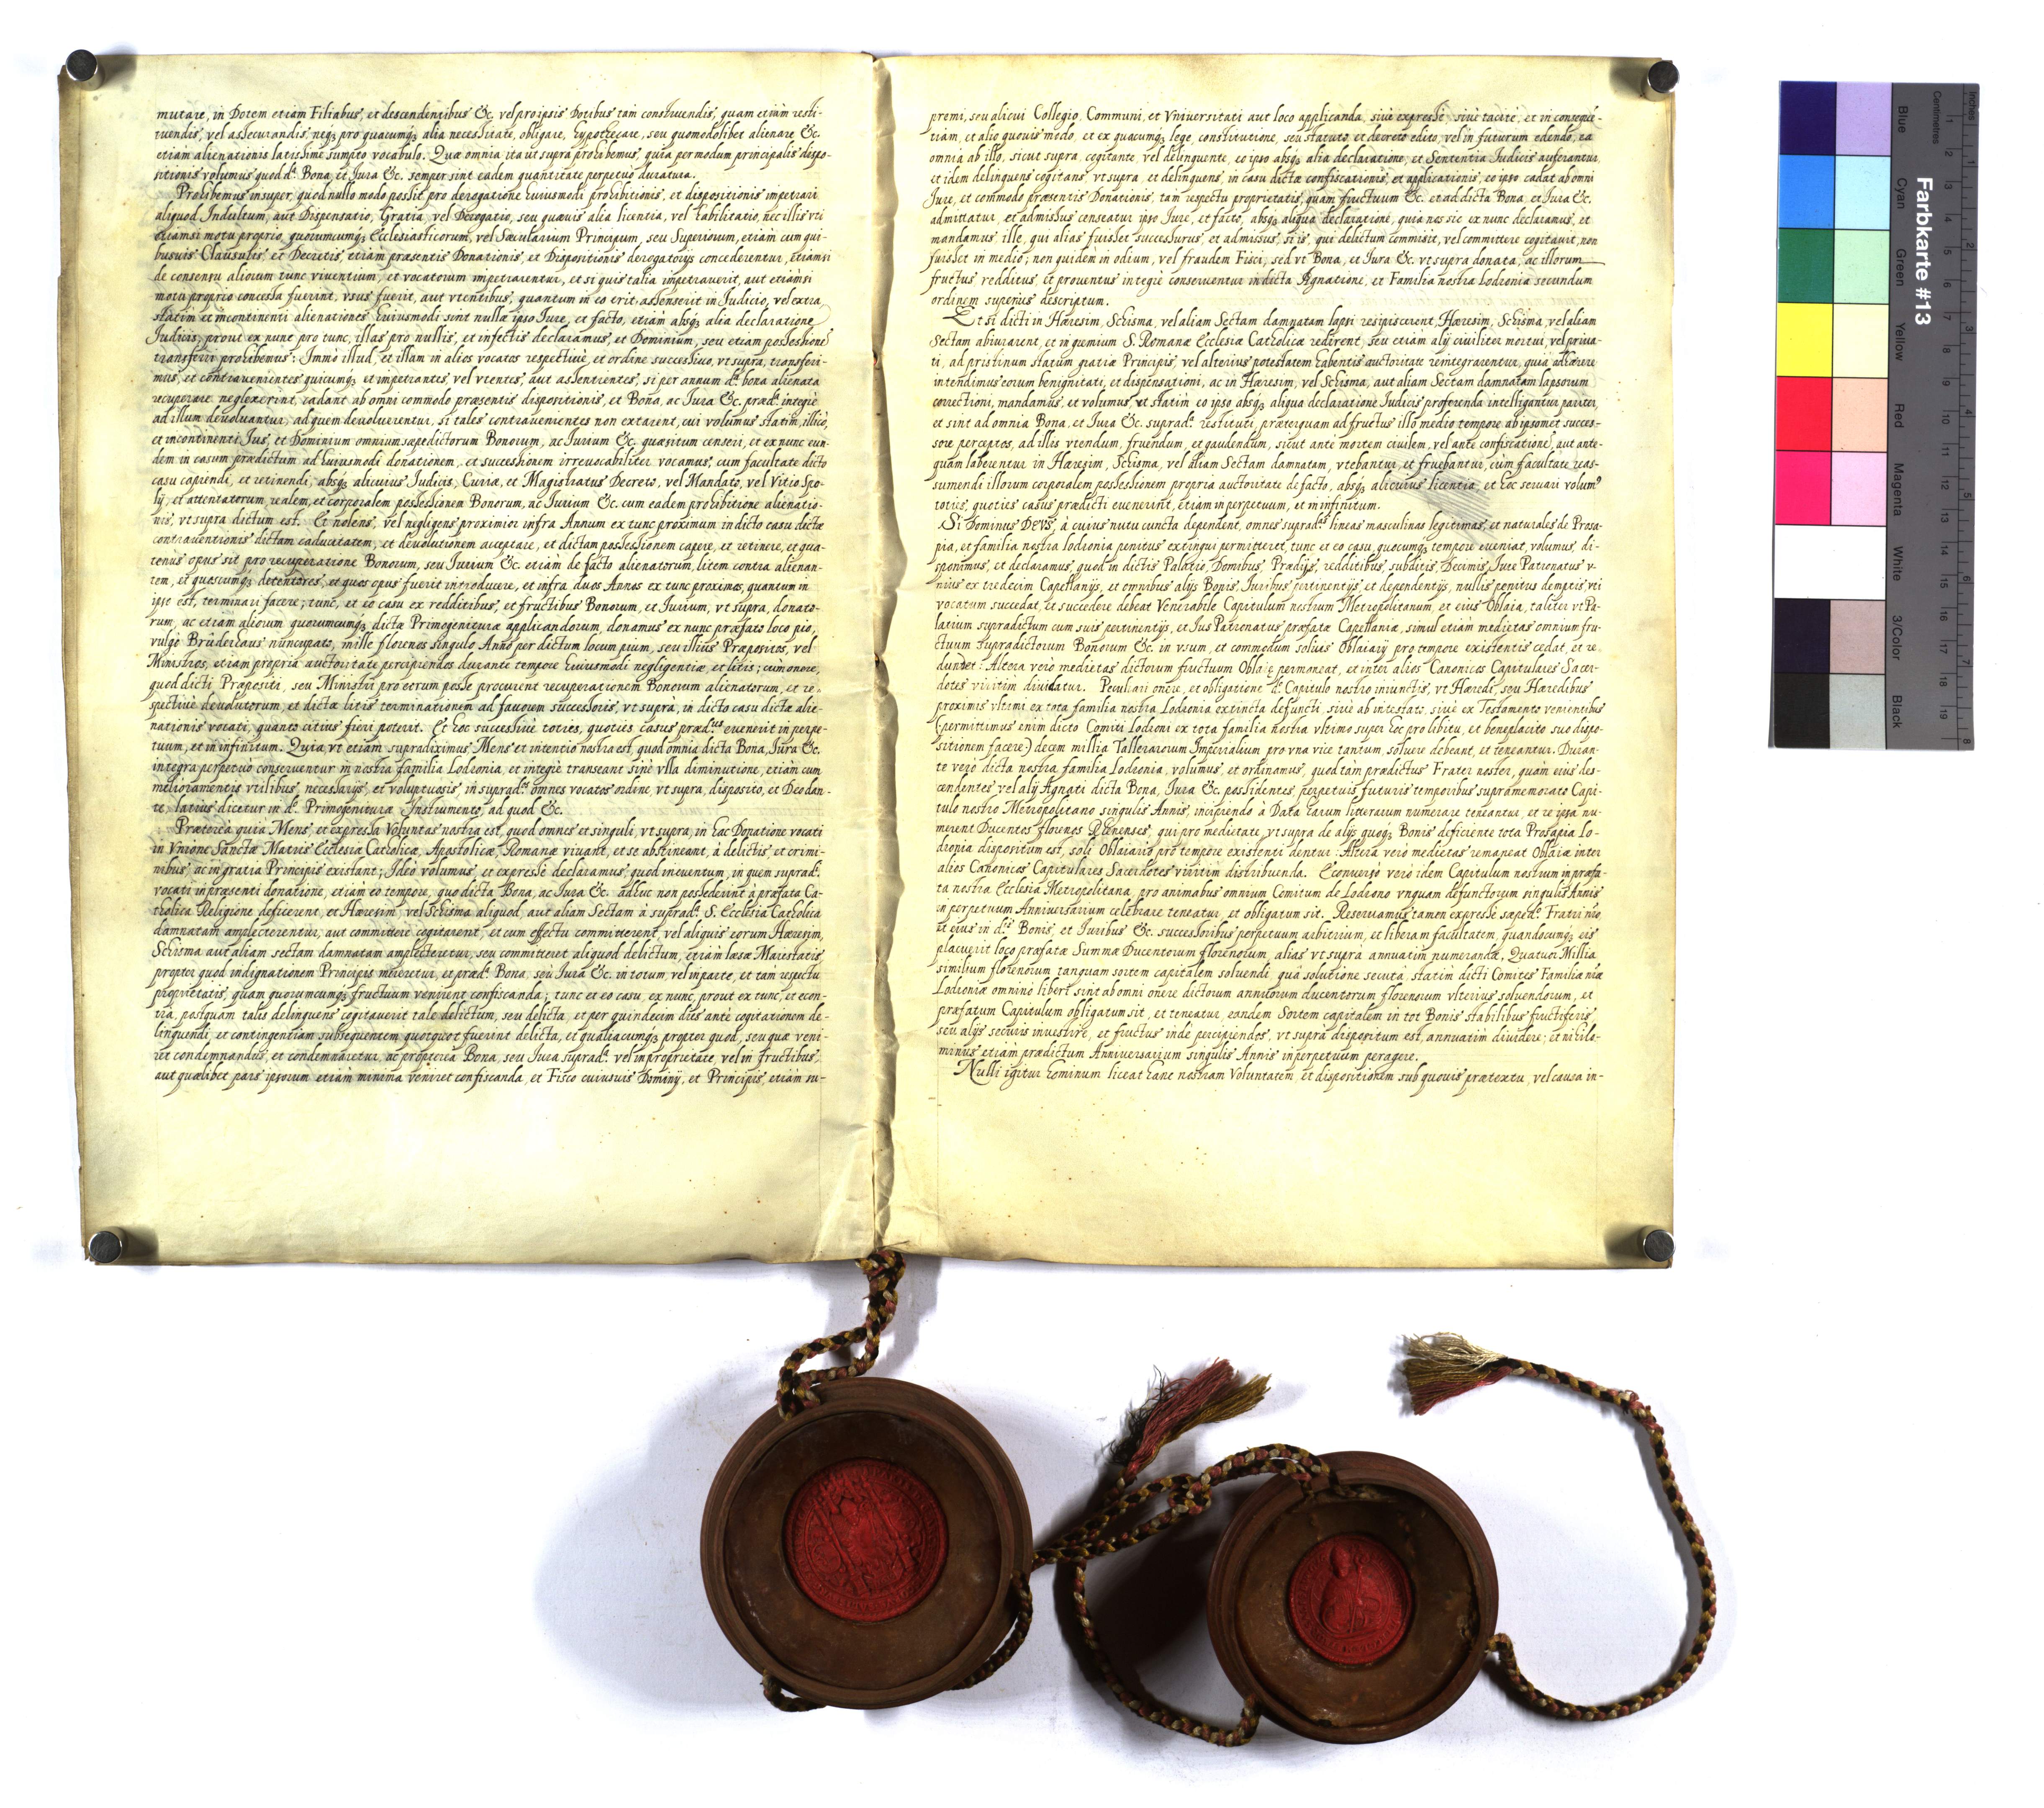 mutare, in Dotem etiam Filiabus, et descendentibus &c. vel pro ipsis Dotibus tàm constituendis, quam etiàm resti-
tuendis, vel assecurandis, neq3 pro quacumq3 alia necessitate, obligare, hypothecare, seu quomodolibet alienare &c.
etiam alienationis latissimè sumpto vocabulo. Quæ omnia ita ut supra prohibemus, quia per modum principalis dispo-
sitionis volumus quod d.ª Bona, et Jura &c. semper sint eadem quantitate perpetuò duratura.
Prohibemus insuper, quod nullo modo possit pro derogatione huiusmodi prohibitionis, et dispositionis impetrari
aliquod Indultum, aut Dispensatio, Gratia, vel Derogatio, seu quævis alia licentia, vel habilitatio, nec illis vti
etiamsi motu proprio, quorumcumq3 Ecclesiasticorum, vel Sæcularium Principum, seu Superiorum, etiam cum qui-
busuis Clausulis, et Decretis, etiam præsentis Donationis, et Dispositionis derogatorijs concederentur, etiamsi
de consensu aliorum tunc viventium, et vocatorum impetrarentur, et si quis talia impetrauerit, aut etiàmsi
motu proprio concessa fuerint, vsus fuerit, aut vtentibus, quantum in eo erit, assenserit in Judicio, vel extra,
statim et incontinenti alienationes huiusmodi sint nullæ ipso Iure, et facto, etiàm absq3 alia declaratione
Judicis, prout ex nunc pro tunc, illas pro nullis, et infectis declaramus, et Dominium, seu etiam possessione
transferri prohibemus: Immò illud, et illam in alios vocatos respectiuè, et ordine successiuo, vt supra, transferi-
mus, et contrauenientes quicumq3 et impetrantes, vel vtentes, aut assentientes, si per annum d.ª bona alienata
recuperare neglexerint, cadant ab omni commodo præsentis dispositionis, et Bona, ac Iura &c. præd.ª integrè
ad illum deuoluantur, ad quem deuoluerentur, si tales contrauenientes non extarent, cui volumus statim, illicò,
et incontinenti Ius, et Dominium omnium sæpedictorum Bonorum, ac Iurium &c. quæsitum censeri, et ex nunc eun-
dem in casum prædictum ad huiusmodi donationem, et successionem irreuocabiliter vocamus, cum facultate dicto
casu capiendi, et retinendi, absq3 alicuius Judicis, Curiæ, et Magistratus Decreto, vel Mandato, vel Vitio Spo-
lij, et attentatorum, realem, et corporalem possessionem Bonorum, ac Iurium &c. cum eadem prohibitione alienatio-
nis, vt supra dictum est. Et nolens, vel negligens proximior infra Annum ex tunc proximum in dicto casu dictæ
contrauentionis dictam caducitatem, et deuolutionem acceptare, et dictam possessionem capere, et retinere, et qua-
tenus opus sit pro recuperatione Bonorum, seu Iurium &c. etiam de facto alienatorum, litem contra alienan-
tem, et quoscumq3 detentores, et quos opus fuerit introducere, et infra duos Annos ex tunc proximos, quantum in
ipso est, terminari facere; tunc, et eo casu ex redditibus, et fructibus Bonorum, et Iurium, vt supra, donato-
rum, ac etiam aliorum quorumcumq3 dictæ Primogenituræ applicandorum, donamus ex nunc præfato loco pio,
vulgò Brüderhaus nuncupato, mille florenos singulo Anno per dictum locum pium, seu illius Præpositos, vel
Ministros, etiam propria auctoritate percipiendos durante tempore huiusmodi negligentiæ et litis; cum onere,
quod dicti Præpositi, seu Ministri pro eorum posse procurent recuperationem Bonorum alienatorum, et re-
spectiuè deuolutorum, et dictæ litis terminationem ad fauorem successoris, vt supra, in dicto casu dictæ alie-
nationis vocati, quanto citius fieri poterit. Et hoc successiuè toties, quoties casus præd.tus euenerit in perpe-
tuum, et in infinitum. Quia, vt etiam supradiximus Mens et intentio nostra est, quod omnia dicta Bona, Iura &c.
integra perpetuò conseruentur in nostra familia Lodronia, et integrè transeant sinè vlla diminutione, etiàm cum
melioramentis vtilibus, necessarijs, et voluptuosis, in suprad.os omnes vocatos ordine, vt supra, disposito, et De dan-
te, latius dicetur in d.º Primogenituræ Instrumento, ad quod &c.
Præterea quia Mens, et expressa Voluntas nostra est, quod omnes et singuli, vt supra, in hac Donatione vocati
in Vnione Sanctæ Matris Ecclesiæ Catholicæ, Apostolicæ, Romanæ viuant, et se abstineant, à delictis, et crimi-
nibus, ac in gratia Principis existant; Ideò volumus, et expressè declaramus, quod in euentum, in quem suprad.i
vocati in præsenti donatione, etiàm eo tempore, quo dicta Bona, ac Iura &c. adhuc non possederint à præfata Ca-
tholica Religione deficerent, et Hæresim, vel Schisma aliquod, aut aliam Sectam à suprad.ª S. Ecclesia Catholica
damnatam amplecterentur, aut committere cogitarent, et cum effectu committerent, vel aliquis eorum Hæresim,
Schisma aut aliam sectam damnatam amplecteretur, seu committeret aliquod delictum, etiàm læsæ Maiestatis
propter quod indignationem Principis mereretur, et præd.ª Bona, seu Iura &c. in totum, vel in parte, et tam respectu
proprietatis, quam quorumcumq3 fructuum venirent confiscanda; tunc et eo casu, ex nunc, prout ex tunc, et econ-
tra, postquam talis delinquens cogitauerit tale delictum, seu delicta, et per quindecim dies antè cogitationem de-
linquendi, et contingentiam subsequentem quotquot fuerint delicta, et qualiacumq3 propter quod, seu quæ veni-
ret condemnandus, et condemnaretur, ac propterea Bona, seu Iura suprad.ª vel in proprietate, vel in fructibus,
aut quælibet pars ipsorum etiàm minima veniret confiscanda, et Fisco cuiusuis Dominij, et Principis, etiàm su-
premi, seu alicui Collegio, Communi, et Vniuersitati aut loco applicanda, siuè expressè siuè tacitè, et in conseque-
tiam, et alio quouis modo, et ex quacumq3 lege constitutione, seu statuto, et decreto edito, vel in futurum edendo, ea
omnia ab illo, sicut supra, cogitante, vel delinquente, eo ipso absq3 alia declaratione, et Sententia Iudicis auferantur,
et idem delinquens cogitans, vt supra, et delinquens, in casu dictæ confiscationis, et applicationis, eo ipso cadat ab omni
Iure, et commodo præsentis Donationis, tam respectu proprietatis, quam fructuum &c. et ad dicta Bona, et Iura &c.
admittatur, et admissus censeatur ipso Iure, et facto, absq3 aliqua declaratione, quia nos sic ex nunc declaramus, et
mandamus, ille, qui alias fuisset successurus, et admissus, si is, qui delictum commisit, vel committere cogitauit, non
fuisset in medio; non quidem in odium, vel fraudem Fisci, sed vt Bona, et Iura &c. vt supra donata, ac illorum
fructus redditus, et prouentus integrè conseruentur in dicta Agnatione, et Familia nostra Lodronia secundum
ordinem superius descriptum.
Et si dicti in Hæresim, Schisma, vel aliam Sectam damnatam lapsi resipiscerent, Hæresim, Schisma, vel aliam
Sectam abiurarent, et in gremium S. Romanæ Ecclesiæ Catholicæ redirent, seu etiam alij ciuiliter mortui, vel priua-
ti, ad pristinum statum gratiæ Principis, vel alterius potestatem habentis auctoritate reintegrarentur, quià adhærere
intendimus eorum benignitati, et dispensationi, ac in Hæresim, vel Schisma, aut aliam Sectam damnatam lapsorum
correctioni, mandamus, et volumus, vt statim eo ipso absq3 aliqua declaratione Judicis proferenda intelligantur pariter,
et sint ad omnia Bona, et Iura &c. suprad.ª restituti, præterquam ad fructus illo medio tempore ab ipsomet succes-
sore perceptos, ad illis vtendum, fruendum, et gaudendum, sicut ante mortem ciuilem, vel ante confiscatione, aut ante-
quàm laberentur in Hæresim, Schisma, vel aliam Sectam damnatam, vtebantur, et fruebantur, cum facultate reas-
sumendi illorum corporalem possessionem propria auctoritate de facto, absq3 alicuius licentia, et hoc seruari volum9
toties, quoties casus prædicti euenerint, etiam in perpetuum, et in infinitum.
Si Dominus DEVS, à cuius nutu cuncta dependent, omnes suprad.as lineas masculinas legitimas, et naturales de Prosa-
pia, et familia nostra Lodronia penitus extingui permitteret, tunc et eo casu, quocumq3 tempore eueniat, volumus, di-
sponimus, et declaramus, quod in dictis Palatio, Domibus, Prædijs, redditibus, subditis, Decimis, Iure Patronatus v-
nius ex tredecim Capellanijs, et omnibus alijs Bonis, Iuribus, pertinentijs, et dependentijs, nullis penitus demptis, vti
vocatum succedat, et succedere debeat Venerabile Capitulum nostrum Metropolitanum, et eius Oblaia, taliter vt Pa-
latium supradictum cum suis pertinentijs, et Ius Patronatus præfatæ Capellaniæ, simul etiàm medietas omnium fru-
ctuum supradictorum Bonorum &c. in vsum, et commodum solius Oblaiarij pro tempore existentis cedat, et re-
dundet: Altera verò medietas dictorum fructuum Oblaiæ permaneat, et inter alios Canonicos Capitulares Sacer-
dotes viritim diuidatur. Peculiari onere, et obligatione d.º Capitulo nostro iniunctis, vt Hæredi, seu Hæredibus
proximis vltimi ex tota familia nostra Lodronia extincta defuncti siuè ab intestato, siuè ex Testamento venientibus
(permittimus enim dicto Comiti Lodroni ex tota familia nostra vltimo super hoc pro libitu, et beneplacito suo dispo-
sitionem facere) decem millia Tallerarorum Imperialium pro vna vice tantum, soluere debeant, et teneantur. Duran-
te verò dicta nostra familia Lodronia, volumus, et ordinamus, quod tàm prædictus Frater noster, quàm eius des-
cendentes vel alij Agnati dicta Bona, Iura &c. possidentes, perpetuis futuris temporibus supramemorato Capi-
tulo nostro Metropolitano singulis Annis, incipiendo à Data harum litterarum numerare teneantur, et re ipsa nu-
merent Ducentos florenos Rhenenses, qui pro medietate, vt supra de alijs quoq3 Bonis deficiente tota Prosapia Lo-
dronia dispositum est, soli Oblaiario pro tempore existenti dentur: Altera verò medietas remaneat Oblaiæ inter
alios Canonicos Capitulares Sacerdotes viritim distribuenda. Econuersò verò idem Capitulum nostrum in præfa-
ta nostra Ecclesia Metropolitana, pro animabus omnium Comitum de Lodrono vnquam defunctorum singulis Annis
in perpetuum Anniuersarium celebrare teneatur, et obligatum sit. Reseruamus tamen expressè sæped.º Fratri nr̃o,
et eius in d.is Bonis, et Iuribus &c. successoribus perpetuum arbitrium, et liberam facultatem, quandocumq3 eis
placuerit loco præfatæ Summæ Ducentorum florenorum, alias vt supra annuatim numerandæ, Quatuor Millia
similium florenorum tanquam sortem capitalem soluendi, quâ solutione secutâ, statim dicti Comites Familiæ nr̃æ
Lodroniæ omninò liberi sint ab omni onere dictorum annuorum ducentorum florenorum vlterius soluendorum, et
præfatum Capitulum obligatum sit, et teneatur, eandem Sortem capitalem in tot Bonis stabilibus fructiferis,
seu alijs securis inuestire, et fructus indè percipiendos, vt supra dispositum est, annuatim diuidere; et nihilo-
minus etiàm prædictum Anniuersarium singulis Annis in perpetuum peragere.
Nulli igitur hominum liceat hanc nostram Voluntatem, et dispositionem sub quouis prætextu, vel causa in-
Farbkarte #13
Centimetres
Inches
Blue
Cyan
Green
Yellow
Red
Magenta
White
3/Color
Black
1 2 3 4 5 6 7 8 9 10 11 12 13 14 15 16 17 18 19
1 2 3 4 5 6 7 8